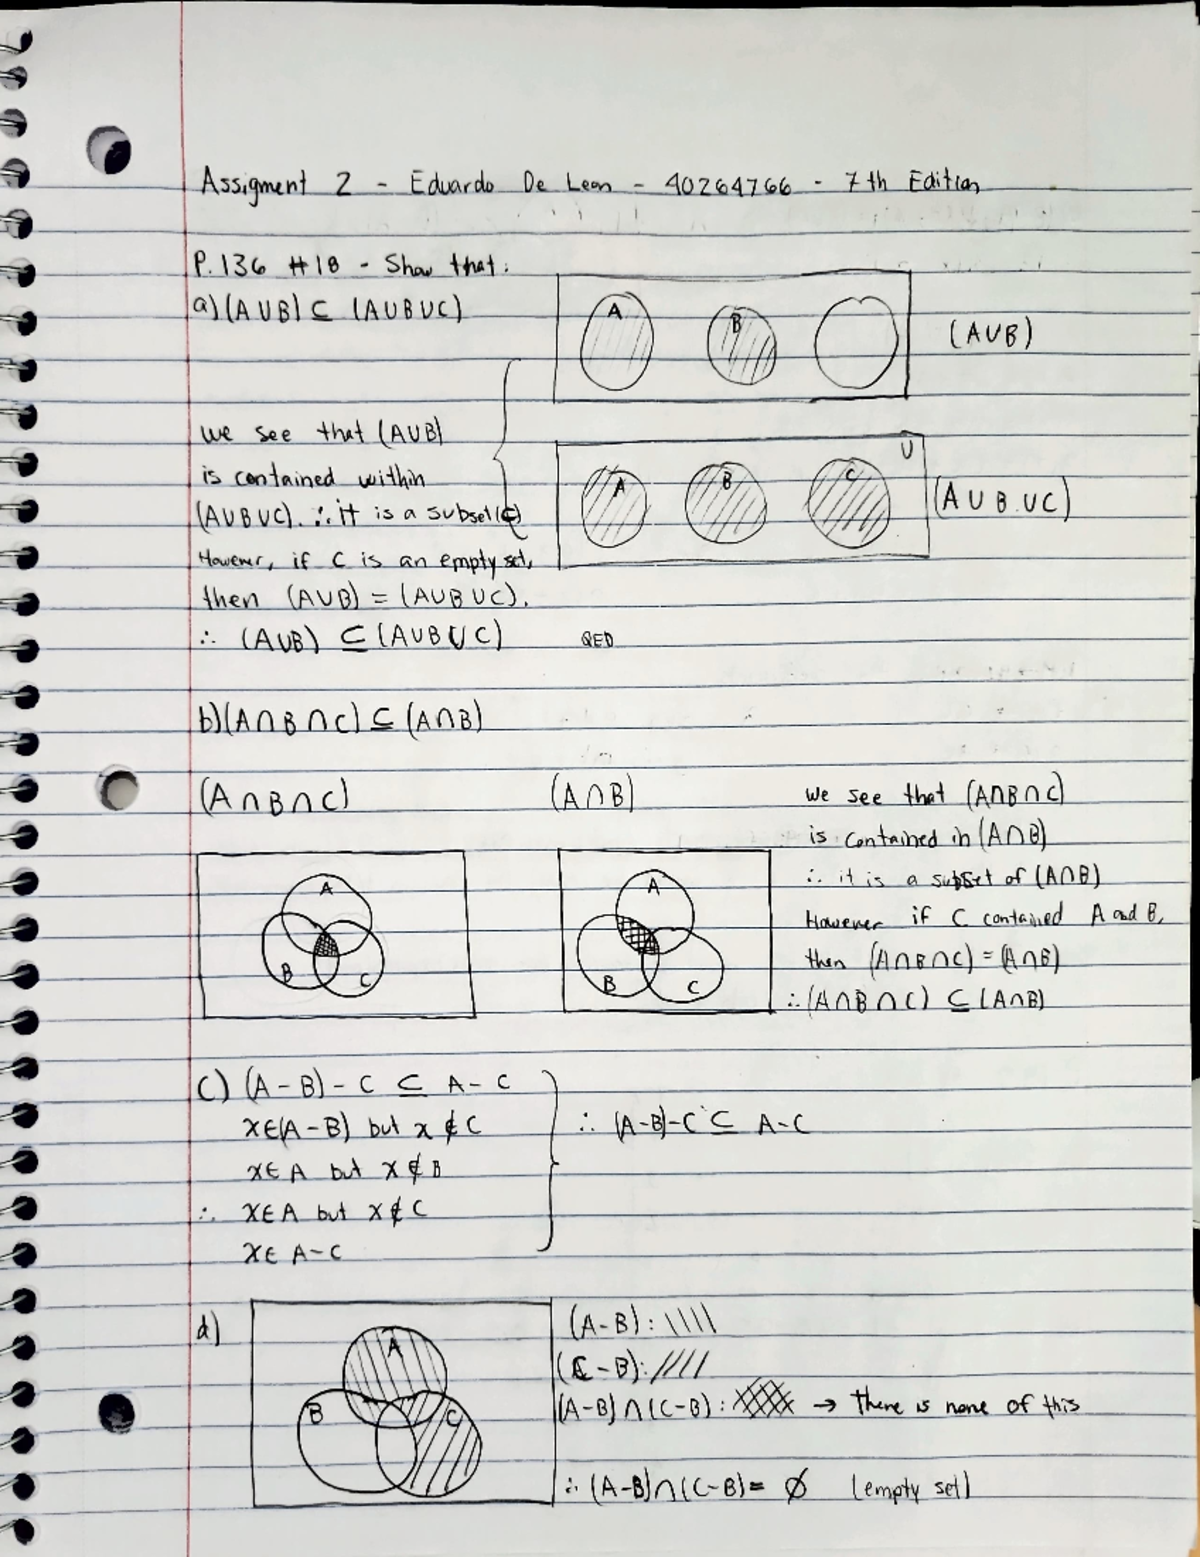 Assigment 2 - Eduardo De Leon - 40264766 - 7th Edition
P.136 #18 - Show that:
a) (A∪B) ⊆ (A∪B∪C)
A B
(A∪B)
we see that (A∪B)
is contained within
(A∪B∪C). ∴ it is a subset (⊂)
However, if C is an empty set,
then (A∪B) = (A∪B∪C).
∴ (A∪B) ⊆ (A∪B∪C) QED
U
A B C
(A∪B∪C)
b) (A∩B∩C) ⊆ (A∩B)
(A∩B∩C)
A
B C
(A∩B)
A
B C
We see that (A∩B∩C)
is contained in (A∩B)
∴ it is a subset of (A∩B)
However if C contained A and B,
then (A∩B∩C) = (A∩B)
∴ (A∩B∩C) ⊆ (A∩B)
C) (A-B)-C ⊆ A-C
x∈(A-B) but x∉C
x∈A but x∉B
∴ x∈A but x∉C
x∈A-C
∴ (A-B)-C ⊆ A-C
d)
A
B C
(A-B): \\\\
(C-B): ////
(A-B)∩(C-B): → There is none of this
∴ (A-B)∩(C-B)= ∅ (empty set)